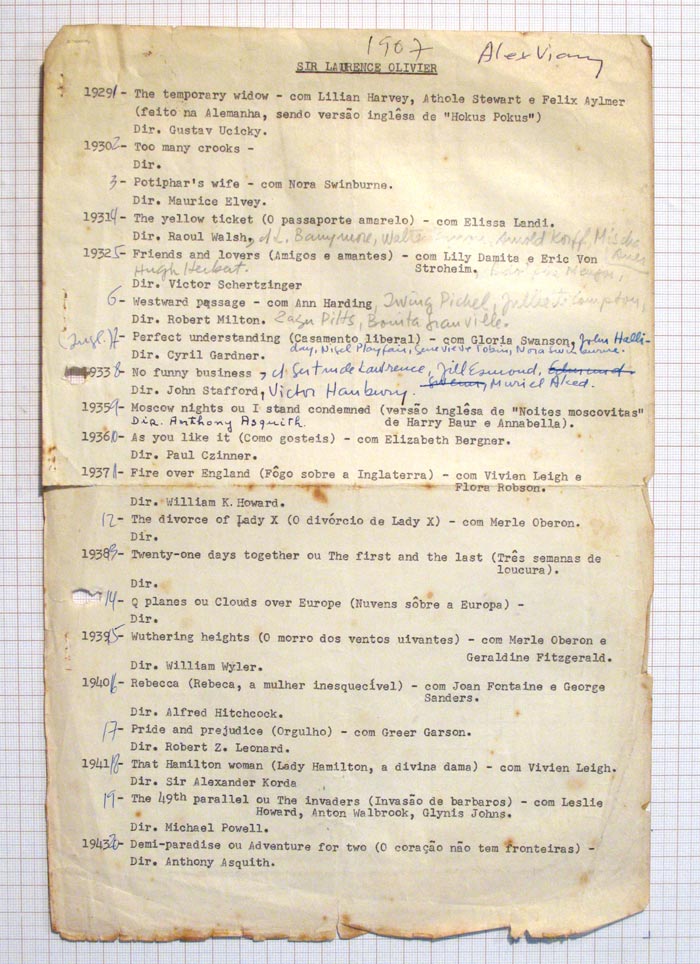 1907
Alex Viany
SIR LAURENCE OLIVIER
1929 1- The temporary widow - com Lilian Harvey, Athole Stewart e Felix Aylmer
(feito na Alemanha, sendo versão inglêsa de "Hokus Pokus")
Dir. Gustav Ucicky.
1930 2- Too many crooks -
Dir.
3- Potiphar's wife - com Nora Swinburne.
Dir. Maurice Elvey.
1931 4- The yellow ticket (O passaporte amarelo) - com Elissa Landi.
Dir. Raoul Walsh, L. Barrymore, Walter Arnold Korff, Mischa
Auer
1932 5- Friends and lovers (Amigos e amantes) - com Lily Damita e Eric Von
Hugh Herbert. Stroheim,
Dir. Victor Schertzinger
6- Westward passage - com Ann Harding, Irving Pichel, Juliette Compton,
Dir. Robert Milton. Zazu Pitts, Bonita Granville.
(Ingl.) 7- Perfect understanding (Casamento liberal) - com Gloria Swanson, John Halli-
day, Nigel Playfair, Genevieve Tobin, Nora Swinburne.
Dir. Cyril Gardner.
1933 8- No funny business, c/ Gertrude Lawrence, Jill Esmond,
Dir. John Stafford, Victor Hanbury. Muriel Aked.
1935 9- Moscow nights ou I stand condemned (versão inglêsa de "Noites moscovitas"
Dir. Anthony Asquith. de Harry Baur e Annabella).
1936 10- As you like it (Como gosteis) - com Elizabeth Bergner.
Dir. Paul Czinner.
1937 11- Fire over England (Fôgo sobre a Inglaterra) - com Vivien Leigh e
Flora Robson.
Dir. William K. Howard.
12- The divorce of Lady X (O divórcio de Lady X) - com Merle Oberon.
Dir.
1938 13- Twenty-one days together ou The first and the last (Três semanas de
loucura).
Dir.
14- Q planes ou Clouds over Europe (Nuvens sôbre a Europa) -
Dir.
1939 15- Wuthering heights (O morro dos ventos uivantes) - com Merle Oberon e
Geraldine Fitzgerald.
Dir. William Wyler.
1940 16- Rebecca (Rebeca, a mulher inesquecível) - com Joan Fontaine e George
Sanders.
Dir. Alfred Hitchcock.
17- Pride and prejudice (Orgulho) - com Greer Garson.
Dir. Robert Z. Leonard.
1941 18- That Hamilton woman (Lady Hamilton, a divina dama) - com Vivien Leigh.
Dir. Sir Alexander Korda
19- The 49th parallel ou The invaders (Invasão de barbaros) - com Leslie
Howard, Anton Walbrook, Glynis Johns.
Dir. Michael Powell.
1943 20- Demi-paradise ou Adventure for two (O coração não tem fronteiras) -
Dir. Anthony Asquith.